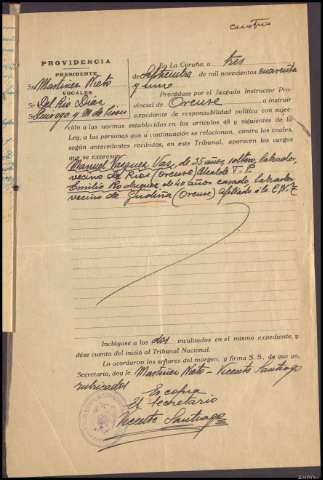 cuatro
PROVIDENCIA
En La Coruña, a tres
PRESIDENTE
de Septiembre de mil novecientos cuarenta
Sr. Martinez Nieto
y uno
VOCALES
Sr. Del Rio Diaz
Procédase por el Juzgado Instructor Pro-
vincial de Orense, a instruir
expediente de responsabilidad política con suje-
ción a las normas establecidas en los artículos 45 y siguientes de la
Ley, a las personas que a continuación se relacionan, contra las cuales,
según antecedentes recibidos, en este Tribunal, aparecen los cargos
que se expresan:
Manuel Vazquez Vaz, de 55 años, soltero, labrador,
vecino de Rios (Orense) Alcalde F. P.
Emilio de 40 años casado, labrador
vecino de Gudiña (Orense) Afiliado a la
Inclúyese a los dos inculpados en el mismo expediente, y
dése cuenta del inicio al Tribunal Nacional.
Lo acordaron los señores del margen, y firma S. S. de que yo,
Secretario, doy fe Martinez Nieto - Vicente Santiago
rubricados
Es copia
El Secretario
Vicente Santiago